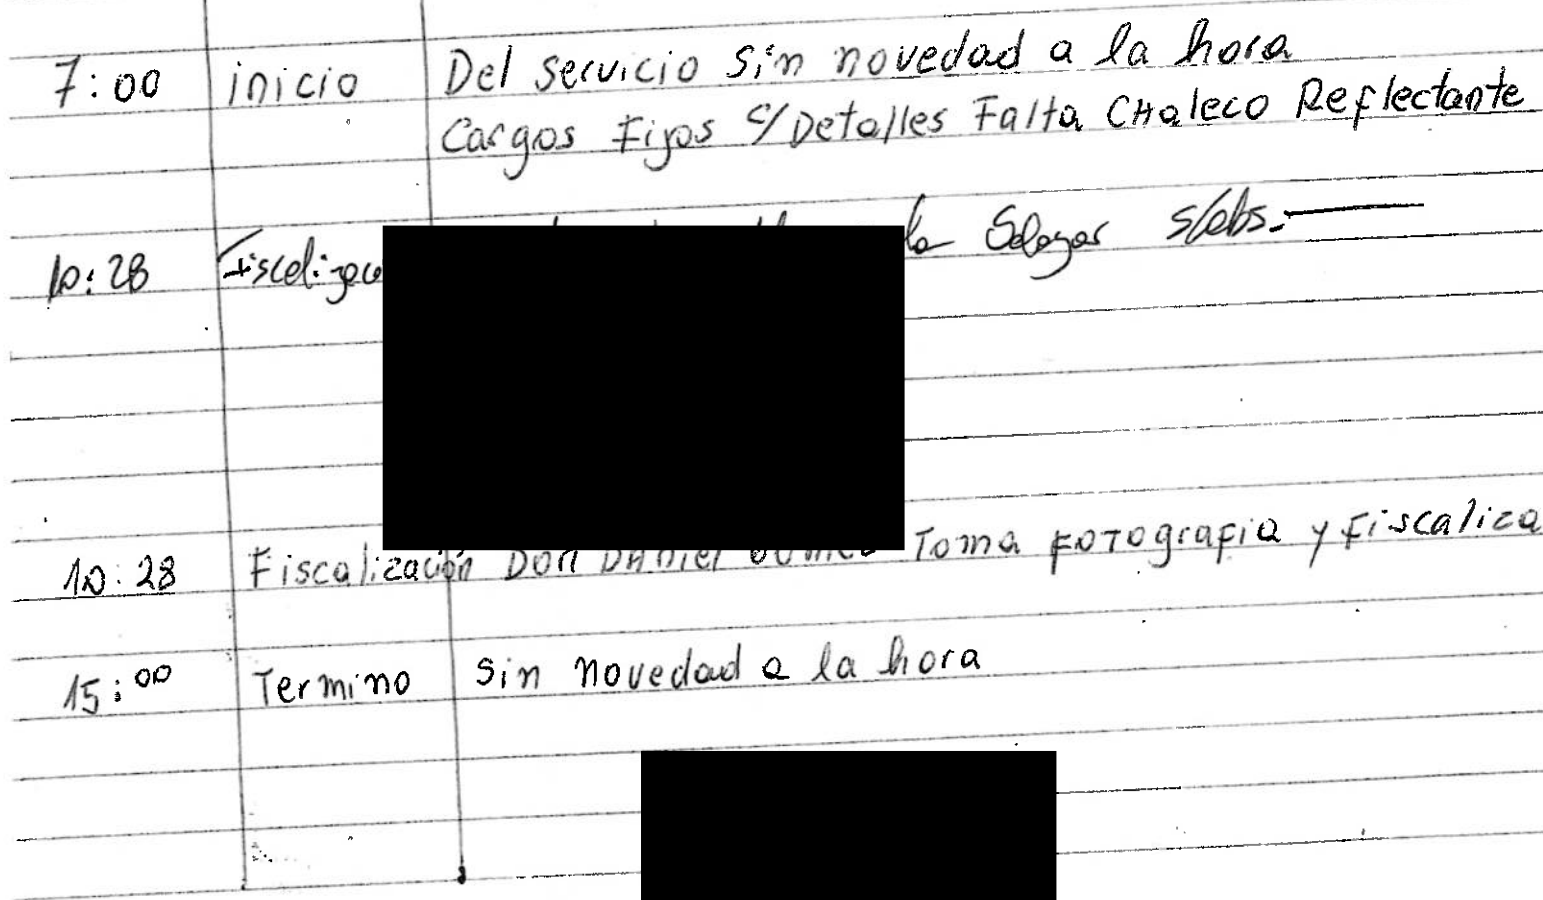 7:00 inicio Del servicio sin novedad a la hora
Cargos Fijos c/Detalles Falta CHaleco Reflectante
10:28 s/obs.
10:28 Fiscalización DON DANIEL Toma FOTOgrafia y Fiscaliza
15:00 Termino sin novedad a la hora